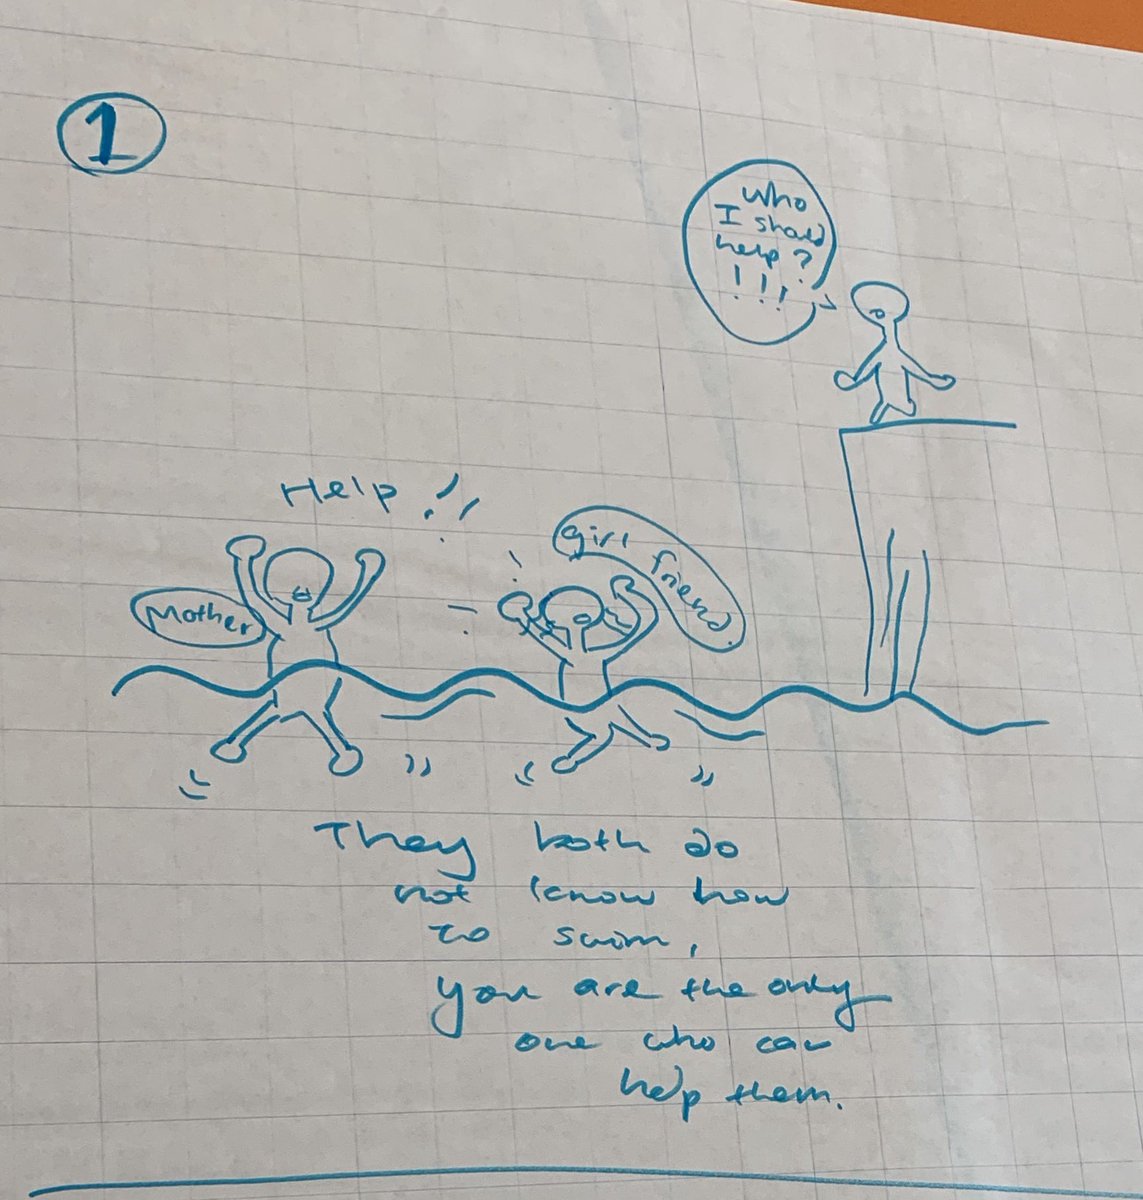 1
Who
I should
help?
!!!
Help!!
girl friend.
Mother
They both do
not know how
to swim,
you are the only
one who can
help them.